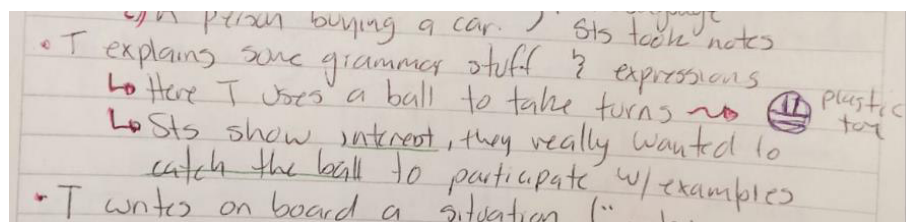 a person buying a car. ) Sts took notes
• T explains some grammar stuff & expressions
↳ Here T uses a ball to take turns ~> plastic toy
↳ Sts show interest, they really wanted to
catch the ball to participate w/ examples
• T writes on board a situation